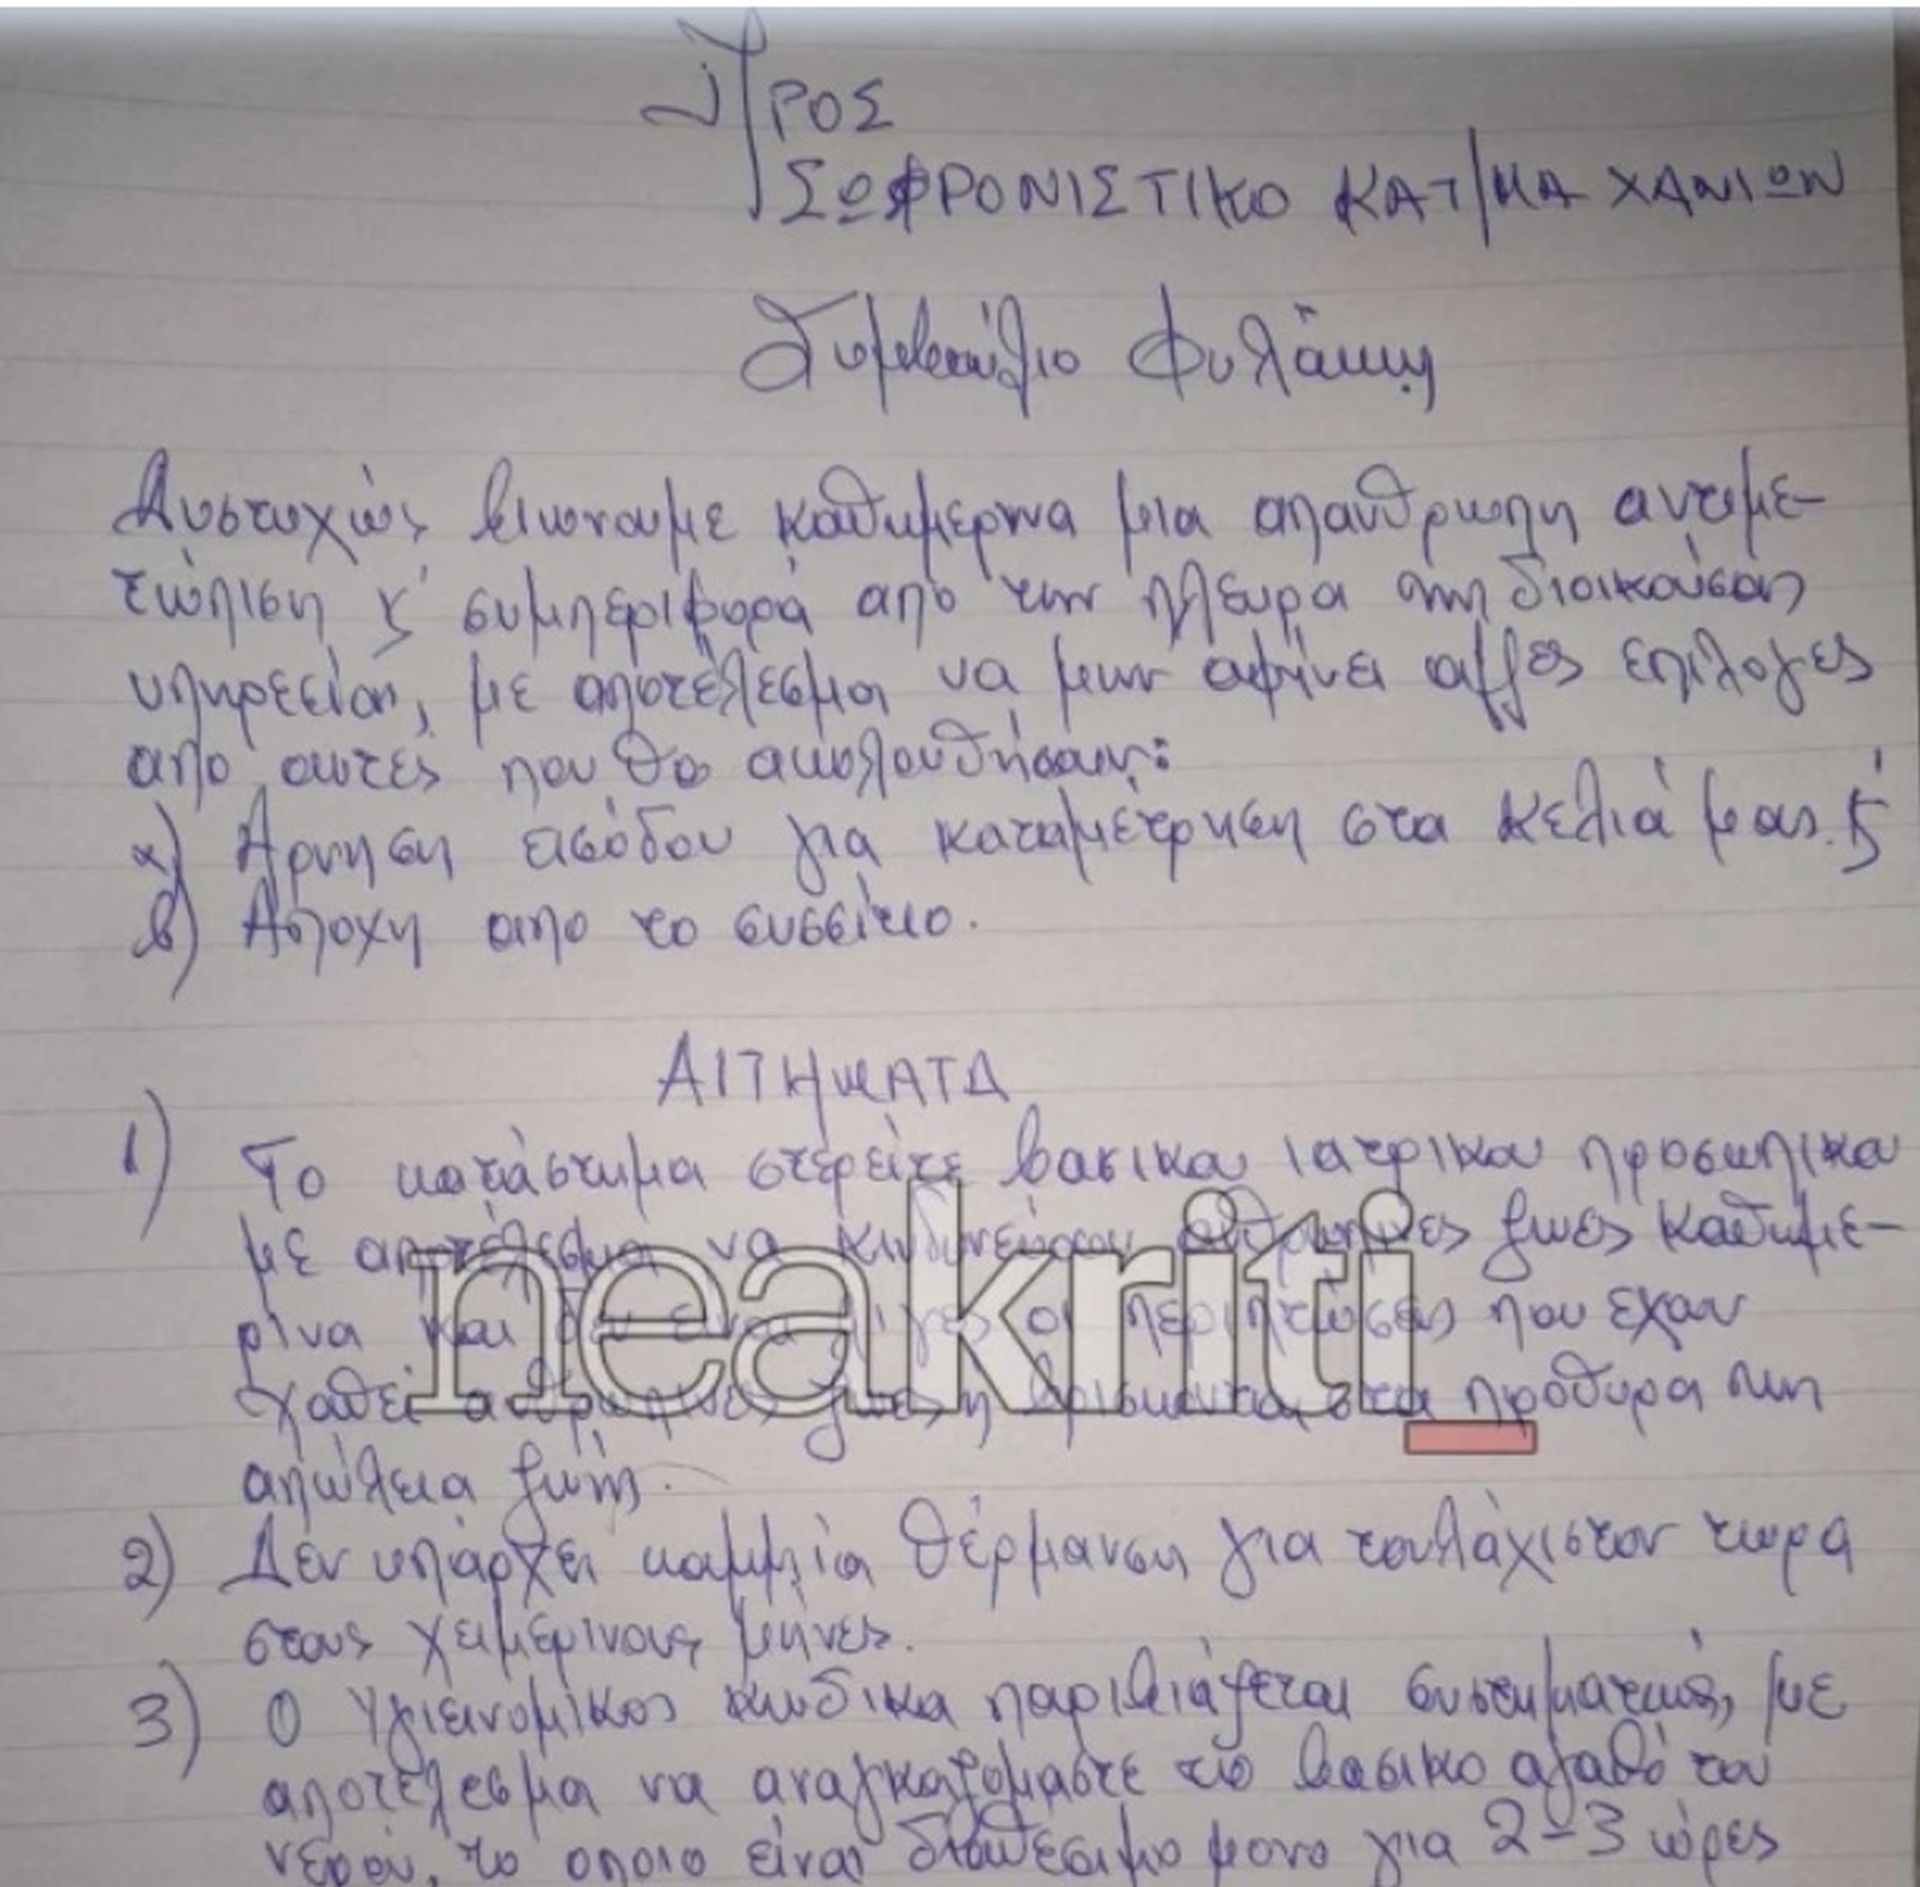 ΠΡΟΣ
ΣΩΦΡΟΝΙΣΤΙΚΟ ΚΑΤ/ΜΑ ΧΑΝΙΩΝ
Συμβούλιο Φυλακής
Δυστυχώς βιώνουμε καθημερινα μια απανθρωπη αντιμε-
τώπιση κ' συμπεριφορά απο την πλευρα της διοικούσας
υπηρεσίας, με αποτέλεσμα να μην αφήνει αλλες επιλογες
απο αυτες που θα ακολουθήσουν:
α) Αρνηση εισόδου για καταμέτρηση στα κελιά μας. κ'
β) Αποχη απο το συσσίτιο.
ΑΙΤΗΜΑΤΑ
1) Το κατάστημα στερείτε βασικα ιατρικα προσωπικα
με αποτέλεσμα να κινδυνεύουν ανθρωπινες ζωες καθημε-
ρινα και δεν ειναι λιγες οι περιπτώσεις που εχουν
χαθεί ανθρωπινες ζωες η βρισκονται στα πρόθυρα της
απώλεια ζωής.
2) Δέν υπάρχει καμμία θέρμανση για τουλάχιστον τωρα
στους χειμερινους μήνες.
3) Ο Υγιεινομικος κωδικα παριβιάζεται συστηματικώς, με
αποτέλεσμα να αναγκαζομαστε το βασικο αγαθό του
νερού, το οποιο είναι διαθέσιμο μονο για 2-3 ώρες
neakriti